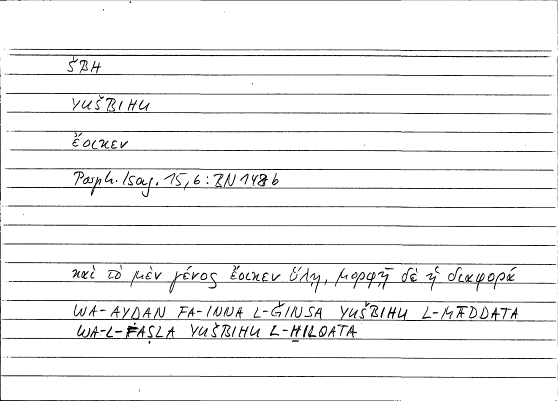 ŠBH
YUŠBIHU
ἔοικεν
Porph. Isag. 15,6: BN 148b
καὶ τὸ μὲν γένος ἔοικεν ὕλῃ, μορφῇ δὲ ἡ διαφορά
WA-AYḌAN FA-INNA L-ǦINSA YUŠBIHU L-MĀDDATA
WA-L-FAṢLA YUŠBIHU L-ḪILQATA